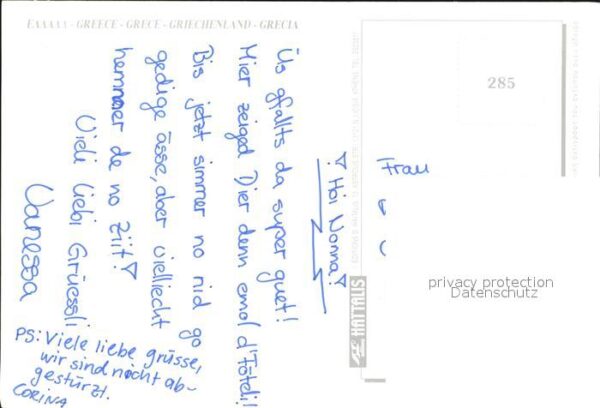 ΕΛΛΑΔΑ - GREECE - GRECE - GRIECHENLAND - GRECIA
▽ Hoi Nonna!
Üs gfallts da super guet!
Mier zeiged Dier denn emol d'Föteli!
Bis jetzt simmer no nid go
gedige ässe, aber vielliecht
hemmer de no Ziit!
Vieli liebi Grüessli
Vanessa
PS: Viele liebe grüsse,
wir sind nicht ab-
gestürzt.
CORINA
Frau
285
HAITALIS
privacy protection
Datenschutz